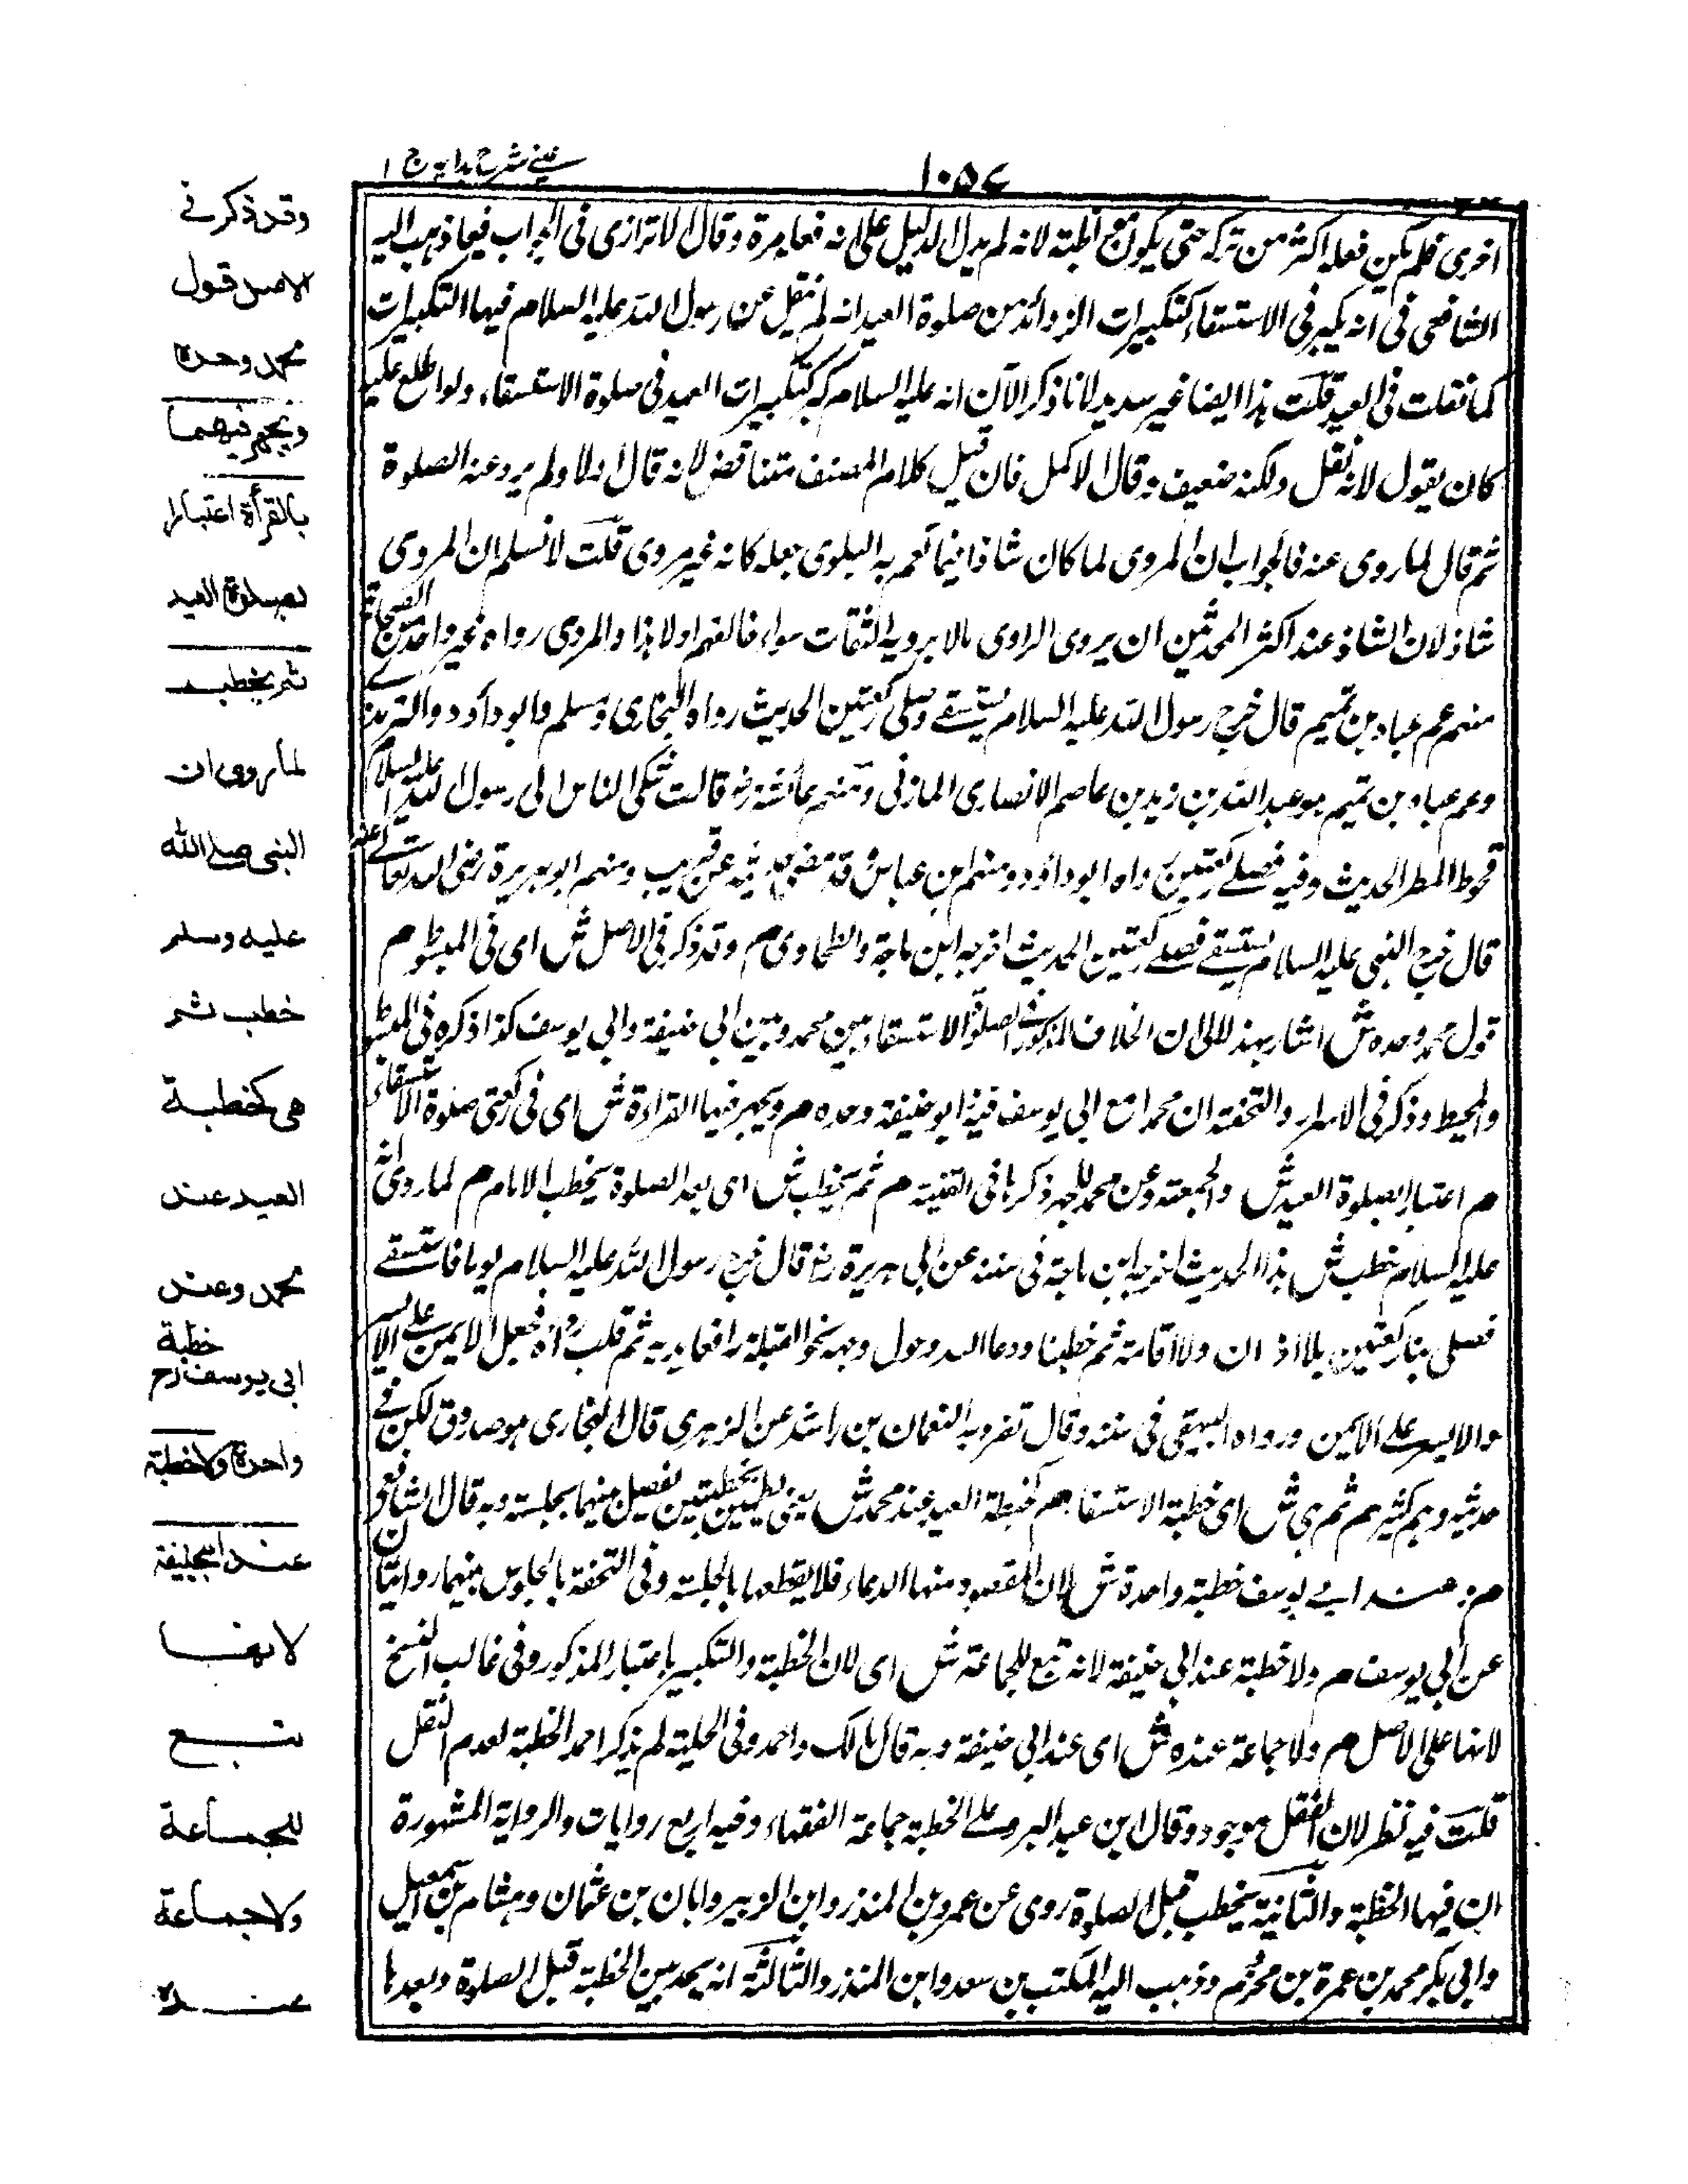 ١٠٥٧
عینی شرح ہدایہ ج ١
اخرى فلم يكن فعله اكثر من تركه حتى يكون مواظبة لانه لم يدل الدليل على انه فعله مرة وقال الاترازى فى الجواب فيما ذهب اليه
الشافعى فى انه يكبر فى الاستسقاء كتكبيرات الزوائد من صلوة العيد انه لم ينقل عن رسول الله عليه السلام فيها التكبيرات
كما نقلت فى العيد قلت هذا ايضا غير سديد لانا ذكرنا الآن انه عليه السلام كبر كتكبيرات العيد فى صلوة الاستسقاء ولو اطلع عليه
كان يقول لانه نقل ولكنه ضعيف وقال الاكمل فان قيل كلام المصنف متناقض لانه قال اولا ولم يرو عنه الصلوة
ثم قال لما روى عنه فالجواب ان المروى لما كان شاذا فيما تعم به البلوى جعله كانه غير مروى قلت لا نسلم ان المروى
شاذ لان الشاذ عند اكثر المحدثين ان يروى الراوى مالا يرويه الثقات سواء خالفهم اولا هذا والمروى رواه غير واحد من الصحابة
منهم عم عباد بن تميم قال خرج رسول الله عليه السلام يستسقے وصلى ركعتين الحديث رواه البخارى ومسلم وابو داؤد والترمذے
وعم عباد بن تميم هو عبد الله بن زيد بن عاصم الانصارى المازنى ومنهم عائشة رض قالت شكى الناس الى رسول الله عليه السلام
قحوط المطر الحديث وفيه فصلے ركعتين رواه ابو داؤد ومنهم ابن عباس وقد مضى حديثه عن قريب ومنهم ابو هريرة رضى الله تعالے عنه
قال خرج النبى عليه السلام يستسقے فصلے ركعتين الحديث اخرجه ابن ماجة والطحاوى م وقد ذكر فى الاصل ش اى فى المبسوط م
قول محمد وحده ش اشار بهذا الى ان الخلاف المذكور فے صلوة الاستسقاء بين محمد وبين ابى حنيفة وابى يوسف كذا ذكره فى المبسوط
والمحيط وذكر فى الاسرار والتحفة ان محمدا مع ابى يوسف فيه ابو حنيفة وحده م ويجهر فيها القراءة ش اى فى ركعتى صلوة الاستسقاء
م اعتبارا بصلوة العيد ش والجمعة وعن محمد لا يجهر ذكرها فى القنية م ثم يخطب ش اى بعد الصلوة يخطب الامام م لما روى انه
عليه السلام خطب ش هذا الحديث اخرجه ابن ماجة فى سننه عن ابى هريرة رض قال خرج رسول الله عليه السلام يوما فاستسقے
فصلى بنا ركعتين بلا اذان ولا اقامة ثم خطبنا ودعا الله وحول وجهه نحو القبلة رافعا يديه ثم قلب رداءه فجعل الايمن علے الايسر
والايسر علے الايمن ورواه البيهقى فى سننه وقال تفرد به النعمان بن راشد عن الزهرى قال البخارى هو صدوق لكن فے
حديثه وهم كثير م ثم هى ش اى خطبة الاستسقاء م كخطبة العيد عند محمد ش يعنى يخطب خطبتين يفصل بينهما بجلسة وبه قال الشافعى
م وعند ابے يوسف خطبة واحدة ش لان المقصود منها الدعاء فلا يقطعها بالجلسة وفى التحفة بالجلوس بينهما روايتان
عن ابى يوسف م ولا خطبة عند ابى حنيفة لانه تبع للجماعة ش اى لان الخطبة والتكبير باعتبار المذكور وفى غالب النسخ
لانها على الاصل م ولا جماعة عنده ش اى عند ابى حنيفة وبه قال مالك واحمد وفى الحلية لم يذكر احمد الخطبة لعدم النقل
قلت فيه نظر لان النقل موجود وقال ابن عبد البر وعلے الخطبة جماعة الفقهاء وفيه اربع روايات والرواية المشهورة
ان فيها الخطبة والثانية يخطب قبل الصلوة روى عن عمر وبن المنذر وابن الزبير وابان بن عثمان وهشام بن اسمعيل
وابى بكر محمد بن عمرة بن محرم وذهب اليه المكتب بن سعد وابن المنذر والثالثة انه يحد بين الخطبة قبل الصلوة وبعدها
وقد ذكر فے
الاصل قول
محمد وحده
ويجهر فيهما
بالقرأة اعتبارا
بصلوة العيد
ثم يخطب
لما روى ان
النبى صلے الله
عليه وسلم
خطب ثم
هى كخطبة
العيد عند
محمد وعند
خطبة
ابى يوسف رح
واحدة ولا خطبة
عند ابيحنيفة
لانها
تبع
للجماعة
ولا جماعة
عنده